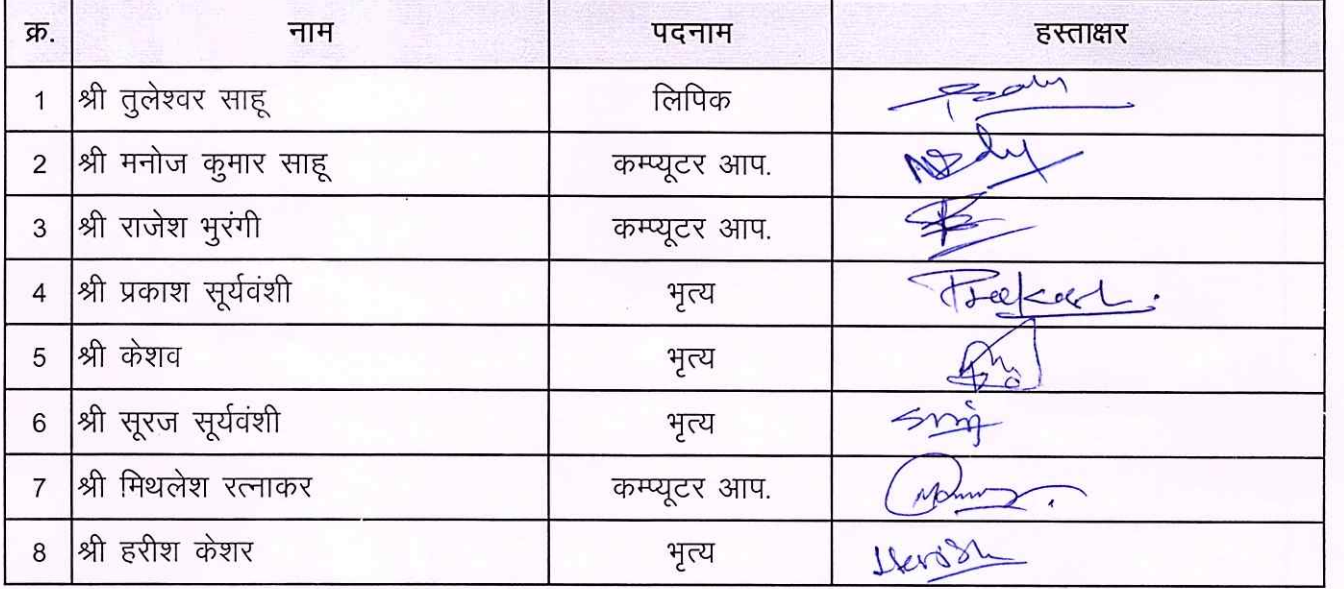 क्र. नाम पदनाम हस्ताक्षर
1 श्री तुलेश्वर साहू लिपिक
2 श्री मनोज कुमार साहू कम्प्यूटर आप.
3 श्री राजेश भुरंगी कम्प्यूटर आप.
4 श्री प्रकाश सूर्यवंशी भृत्य Prakash.
5 श्री केशव भृत्य
6 श्री सूरज सूर्यवंशी भृत्य
7 श्री मिथलेश रत्नाकर कम्प्यूटर आप.
8 श्री हरीश केशर भृत्य